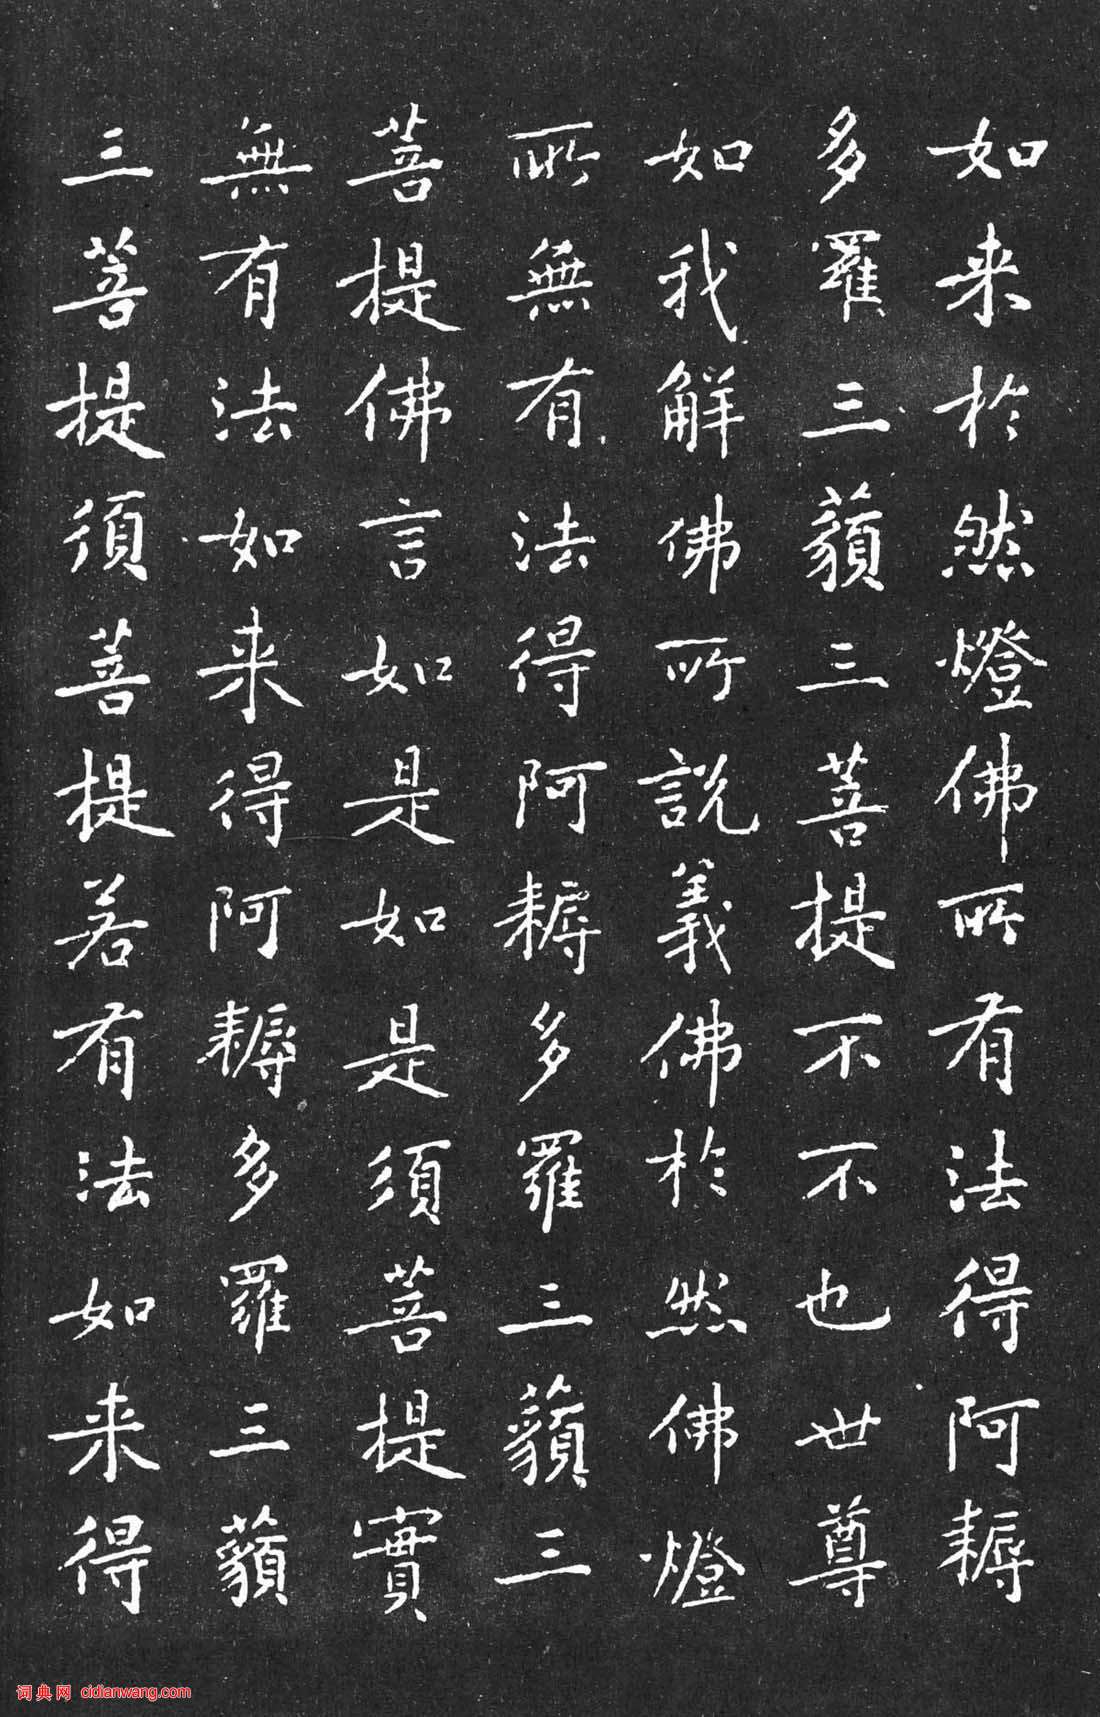 如来於然燈佛所有法得阿耨
多羅三藐三菩提不不也世尊
如我解佛所說義佛於然佛燈
所無有法得阿耨多羅三藐三
菩提佛言如是如是須菩提實
無有法如来得阿耨多羅三藐
三菩提須菩提若有法如来得
词典网 cidianwang.com